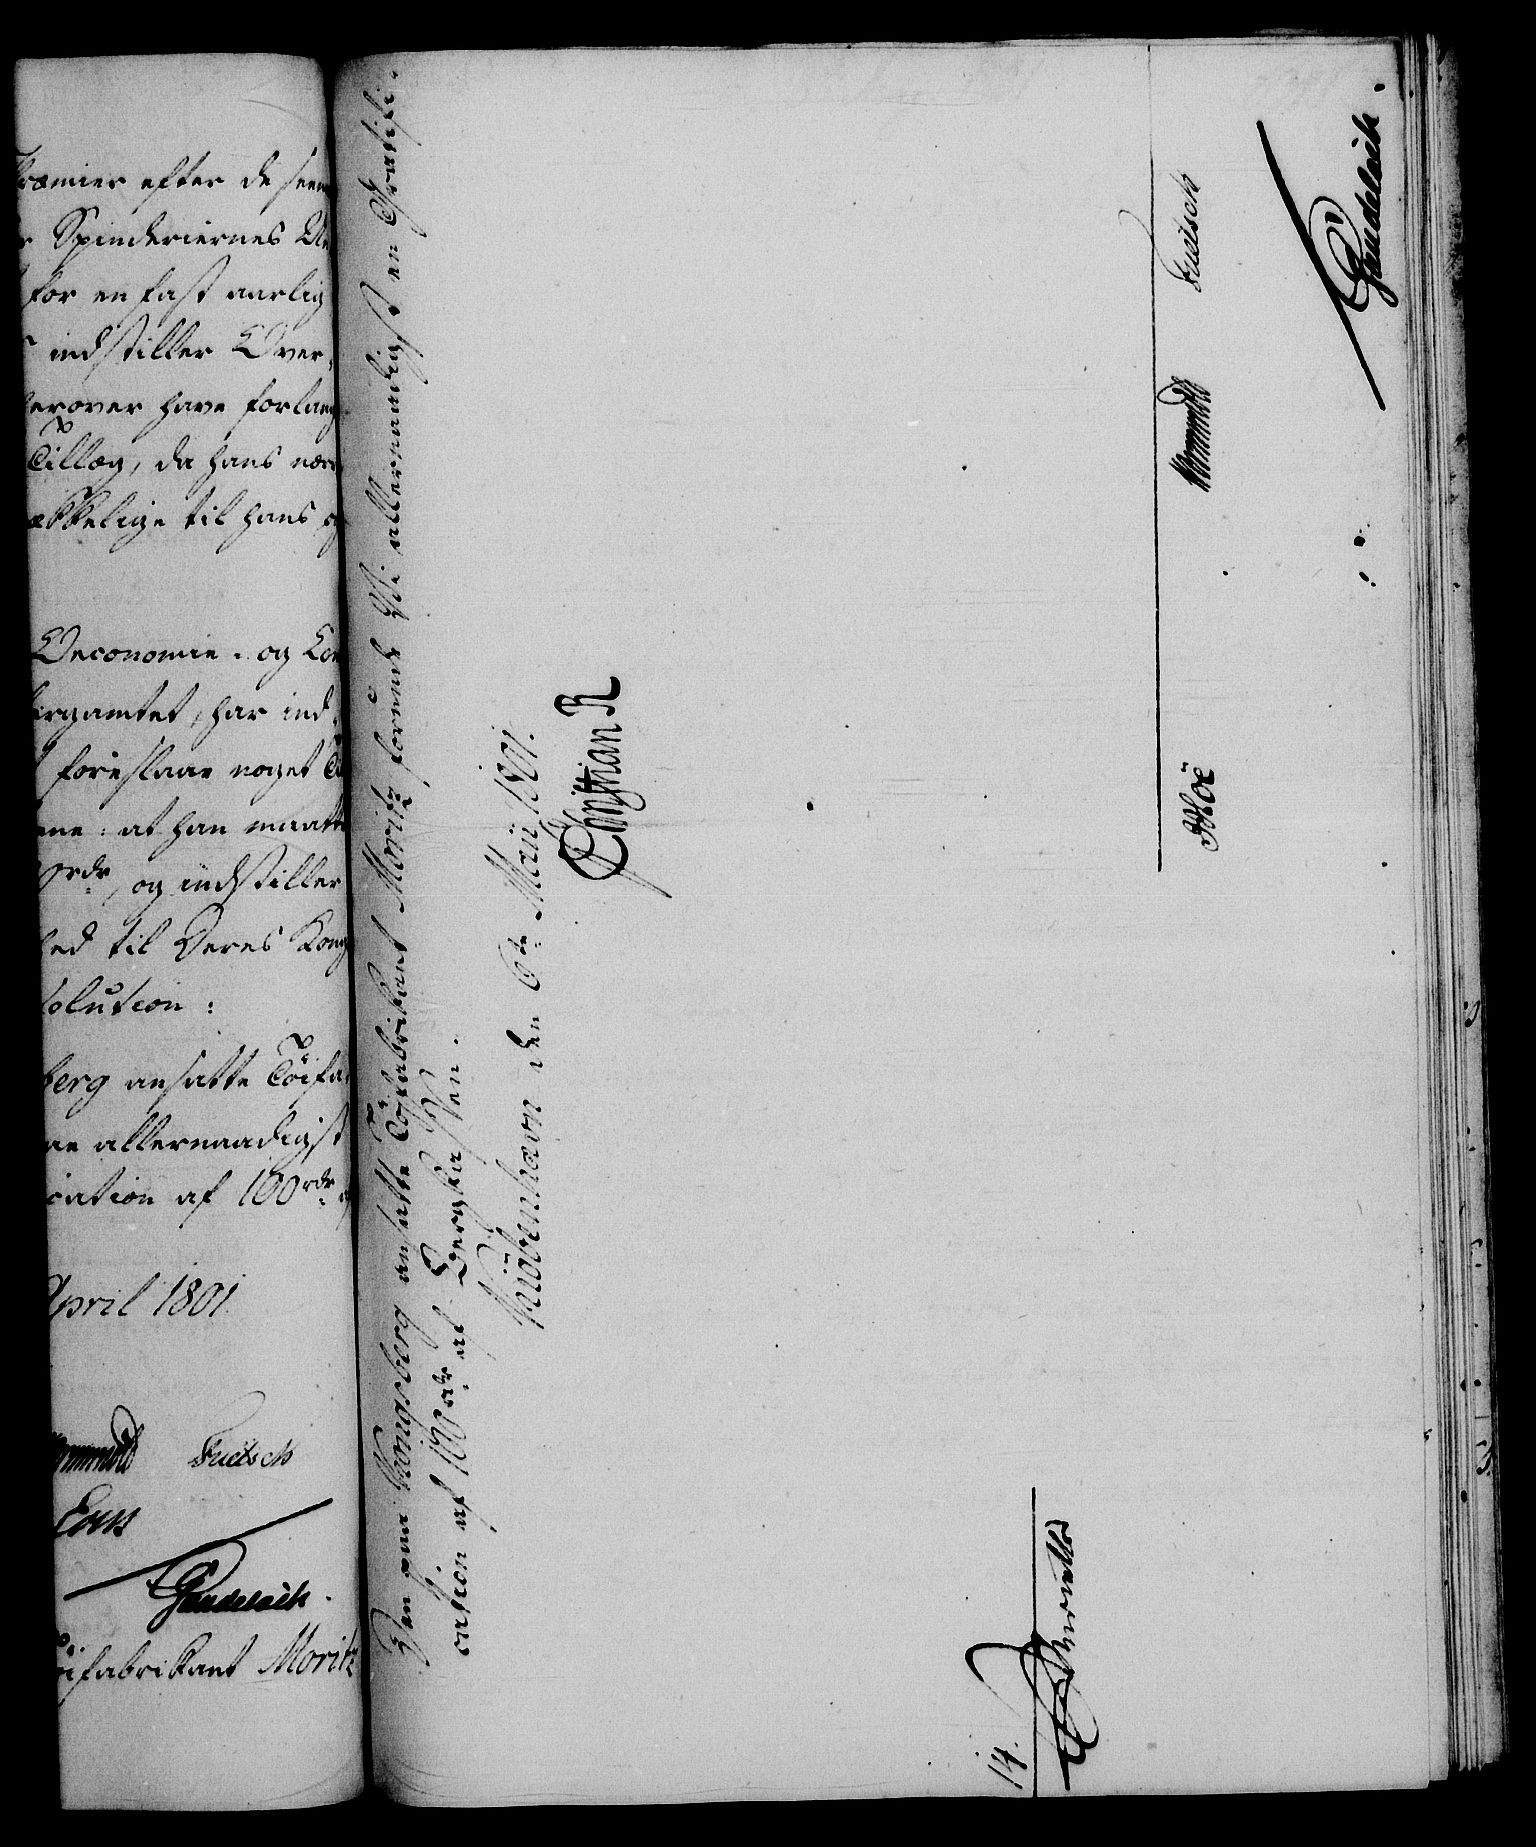 Præmier efter de seen
Spinderiernes
for en fast aarlig
indstiller Over-
herover have forlang
Tillæg, da hans nær
ækkelige til hans
Oeconomie- og Com
Bergamtet, har ind-
foreslaae noget
at han maatte
rdr, og indstiller
hed til Deres Kong
solution:
berg ansatte Töifa-
allernaadigst
cation af 100 rdr
April 1801
Wormskiold Fuëtsch
Gaudelach.
Töifabrikant Moritz
Den paa Kongsberg ansatte Töifabrikant Moritz forunde Vi allernaadigst en Gratifi-
cation af 100 rdr af Bergkassen.
Kiöbenhavn den 6te Maii 1801.
Christian R
14.
Hoë Wormskiold Fuëtsch
Gaudelach.